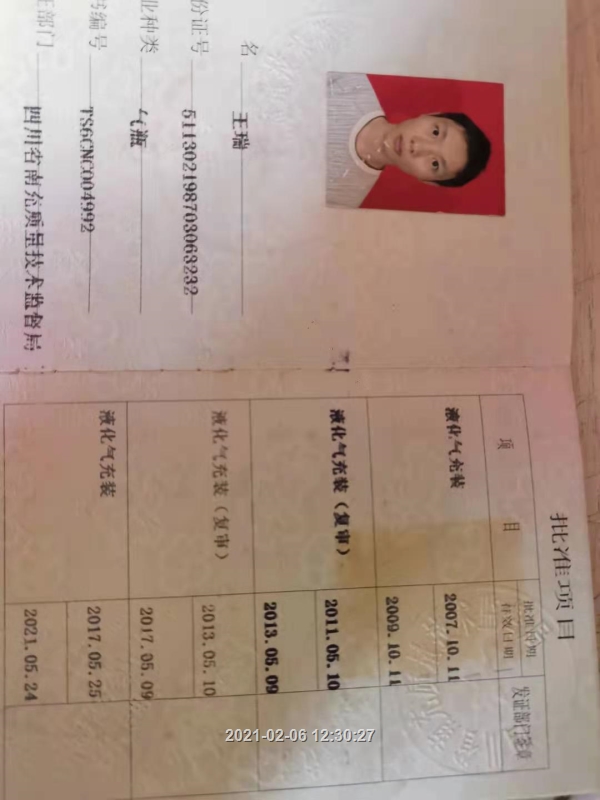 名 王瑞
份证号 511302198703063232
业种类 气瓶
编号 TS6CNC004992
部门 四川省南充质量技术监督局
批准项目
项 目 批准日期 有效日期 发证部门签章
液化气充装 2007.10.11
2009.10.11
液化气充装（复审） 2011.05.10
2013.05.09
液化气充装（复审） 2013.05.10
2017.05.09
液化气充装 2017.05.25
2021.05.24
2021-02-06 12:30:27